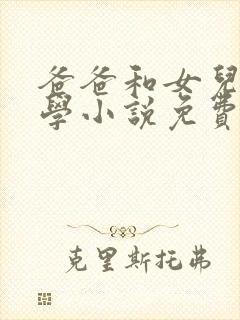 爸爸和女兒
學小說免費
克里斯托弗